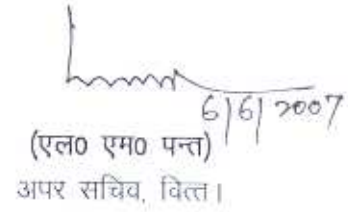 6/6/2007
(एल0 एम0 पन्त)
अपर सचिव, वित्त।